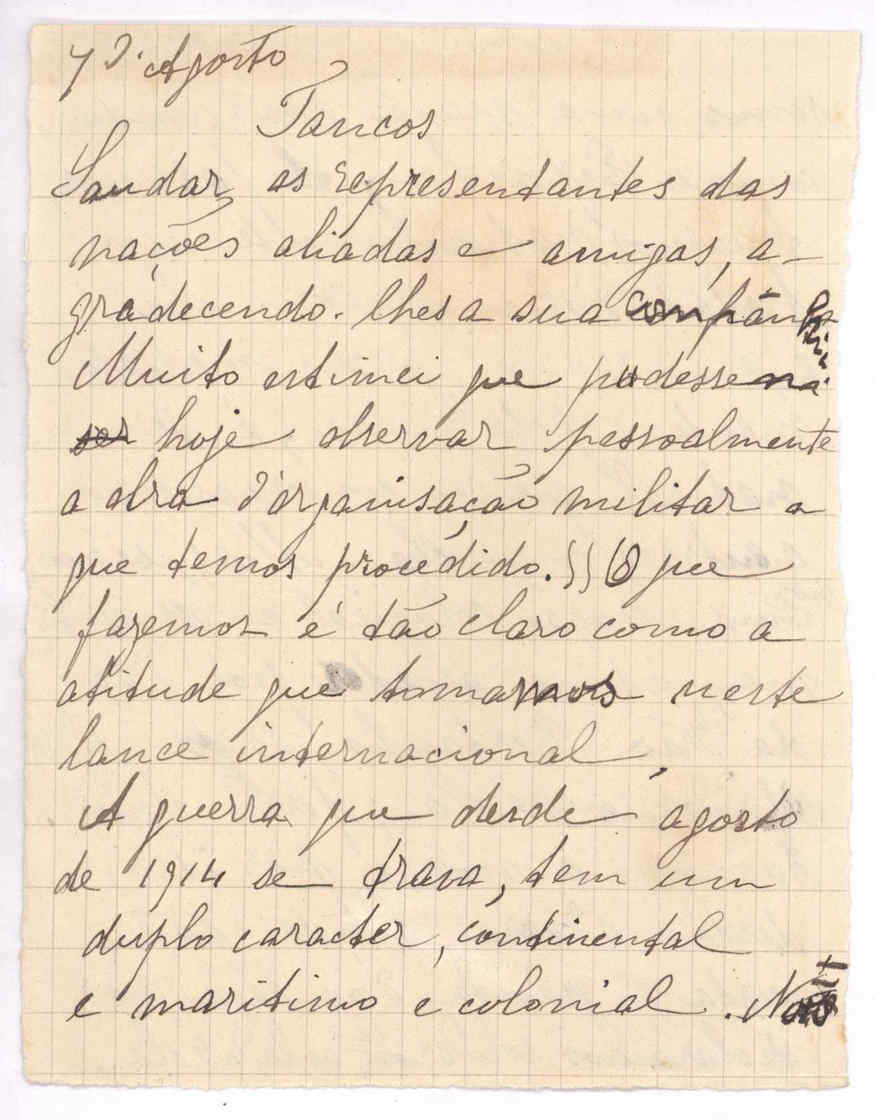 7 d'Agosto
Tancos
Saudar os representantes das
nações aliadas e amigas, a-
gradecendo-lhes a sua
Muito estimei que pudessem
ser hoje observar pessoalmente
a obra d'organisação militar a
que temos procedido. O que
fazemos é tão claro como a
atitude que tomamos neste
lance internacional.
A guerra que desde agosto
de 1914 se trava, tem um
duplo caracter, continental
e maritimo e colonial.